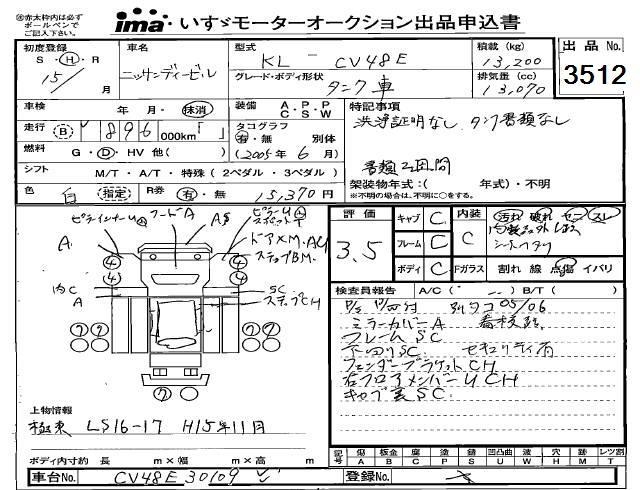 ※赤太枠内は必ず
ボールペンで
ご記入下さい
ima いすゞモーターオークション出品申込書
初度登録 車名 型式 積載 (kg) 出品 No.
S・H・R ニッサンディーゼル KL-CV48E 13,200
15/ 月 グレード・ボディ形状 排気量 (cc) 3512
タンク車 13,070
車検 年 月・抹消 装備 A・P・P 特記事項
C・S・W
洗浄証明なし タンク書類なし
走行 (B) 896 000km タコグラフ
有・無 別体
燃料 G・D・HV 他( ) (2005年6月)
シフト M/T・A/T・特殊 (2ペダル・3ペダル)
書類2週間
架装物年式:( 年式)・不明
※不明の場合は、不明に○をする。
色 白 (指定) R券 有・無 15,370円
評価 3.5
キャブ C 内装 C 汚れ 破れ コゲ スレ
フレーム C
ボディ C Fガラス 割れ 線 点傷 イバリ
A フードA
ドアXM.AU
ステップBM
内C SC
A ステップCH
④ ④
④ ④
⑦⑦ ⑦⑦
⑦
検査員報告 A/C ( ) B/T ( )
別タコ 05/06
ミラーカバーA
フレームSC
下回りSC セキュリティ有
フェンダーブラケットCH
右フロアメンバーU CH
キャブ裏SC
上物情報
極東 LS16-17 H15年11月
ボディ内寸約 長 m×幅 m×高 m
記号 傷 A 板金 B 腐 C 塗 P 錆 S 凹凸曲 U 波 W 穴 H 跡 M レツ割 T
車台No. CV48E 30109 登録No.